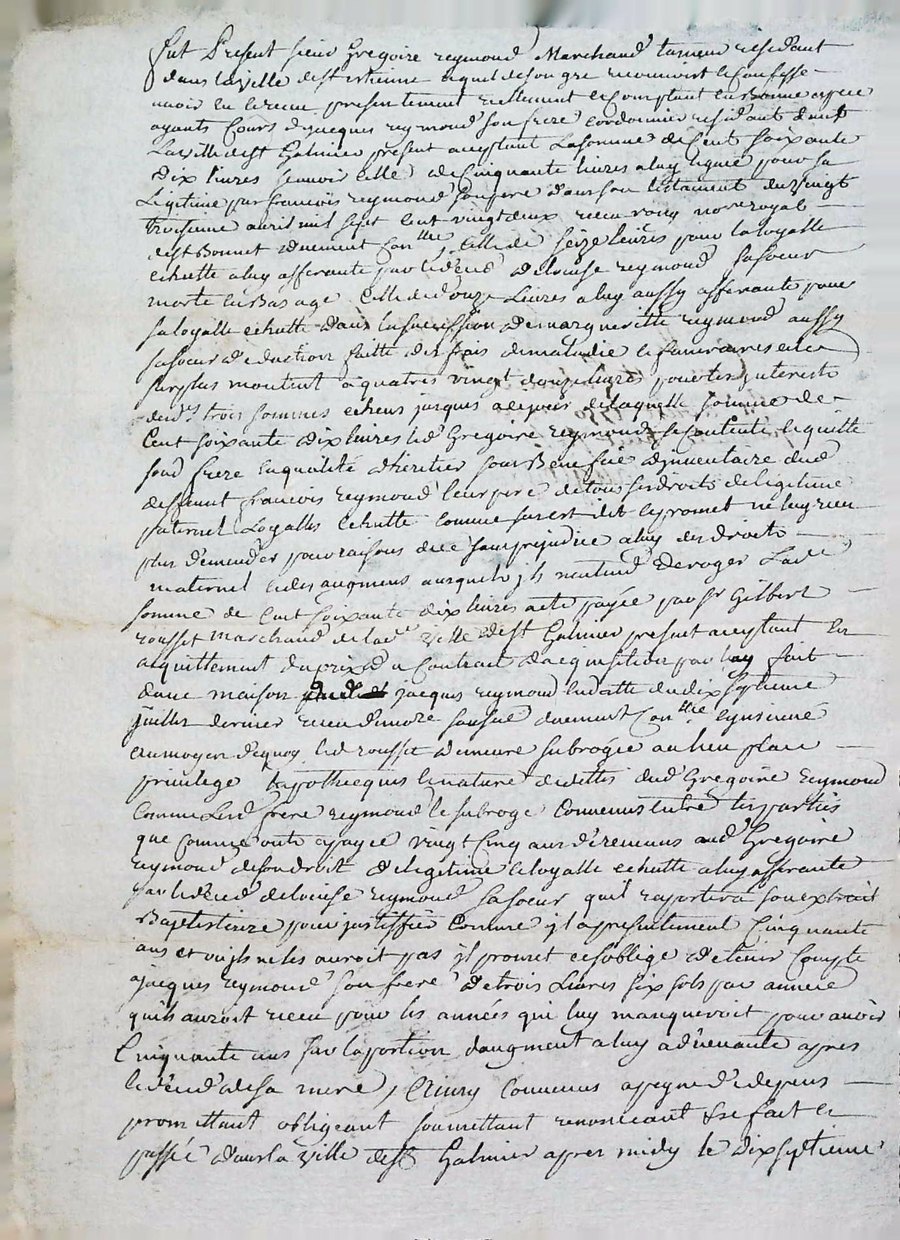 fut Present sieur Gregoire reymond Marchand tanneur residant
dans la ville de st etienne lequel de son gre reconnoit et confesse
avoir eu et receu presentement reellement et comptant en bonne especes
ayants Cours de jacques reymond son frere cordonnier residant dans
La ville de st Galmier present acceptant La somme de Cent soixante
dix livres scavoir celle de Cinquante livres a luy leguée pour sa
Legitime par francois reymond son pere dans son testament du vingt
troisieme avril mil sept cent vingt deux receu nore royal
de st Bonnet duement Conllé, Celle de seize livres pour la loyalle
echutte a luy afferante par le deced de louise reymond sa soeur
morte en Bas age Celle de douze Livres a luy aussy afferante pour
sa loyalle echutte dans la succession de margueritte reymond aussy
sa soeur deduction faitte des frais de maladie et funeraires et le
surplus montent a quatres vingt douze livres pour les interests
desds trois sommes echeus jusques a ce jour de laquelle somme de
Cent soixante dix livres led Gregoire reymond se Contente et quitte
sond frere en qualité d'heritier sous Benefice d'inventaire dud
deffunt francois reymond leur pere de tous ses droits de legitime
paternel Loyalles echutte comme sus est dit et promet ne luy rien
plus demender pour raisons de ce sans prejudice a luy des droits
maternel et des augmens ausquels ils n'entend deroger Lade
somme de Cent soixante dix livres a eté payée par sr Gilbert
rousset marchand de lade ville de st Galmier present acceptant en
acquittement du prix du Contract d'acquisition par luy fait
dune maison jacques reymond en datte du dix septieme
juillet dernier receu duement Conllé
au moyen de quoy led rousset demeure subrogée au lieu place
privilege hypothecques et nature de dettes dud Gregoire reymond
Comme Led frere reymond le subroge Convenus entre les parties
que comme on a payée vingt Cinq ans de revenus aud Gregoire
reymond de son droit de legitime et loyalle echutte a luy afferante
par le deced de louise reymond sa soeur quil raportera son extrait
Baptistaire pour justiffier Comme il a presentement Cinquante
ans et ou ils ne les auroit pas il promet et s'oblige de tenir Compte
a jacques reymond son frere de trois Livres six sols par année
quils auroit receu pour les années qui luy manqueroit pour avoir
Cinquante ans sur la portion d'augment a luy advenante apres
le deced de sa mere, Ainsy Convenus a peyne de depens
promettant obligeant soumettant renonceant &c fait et
passée dans la ville de st Galmier apres midy le dix septieme